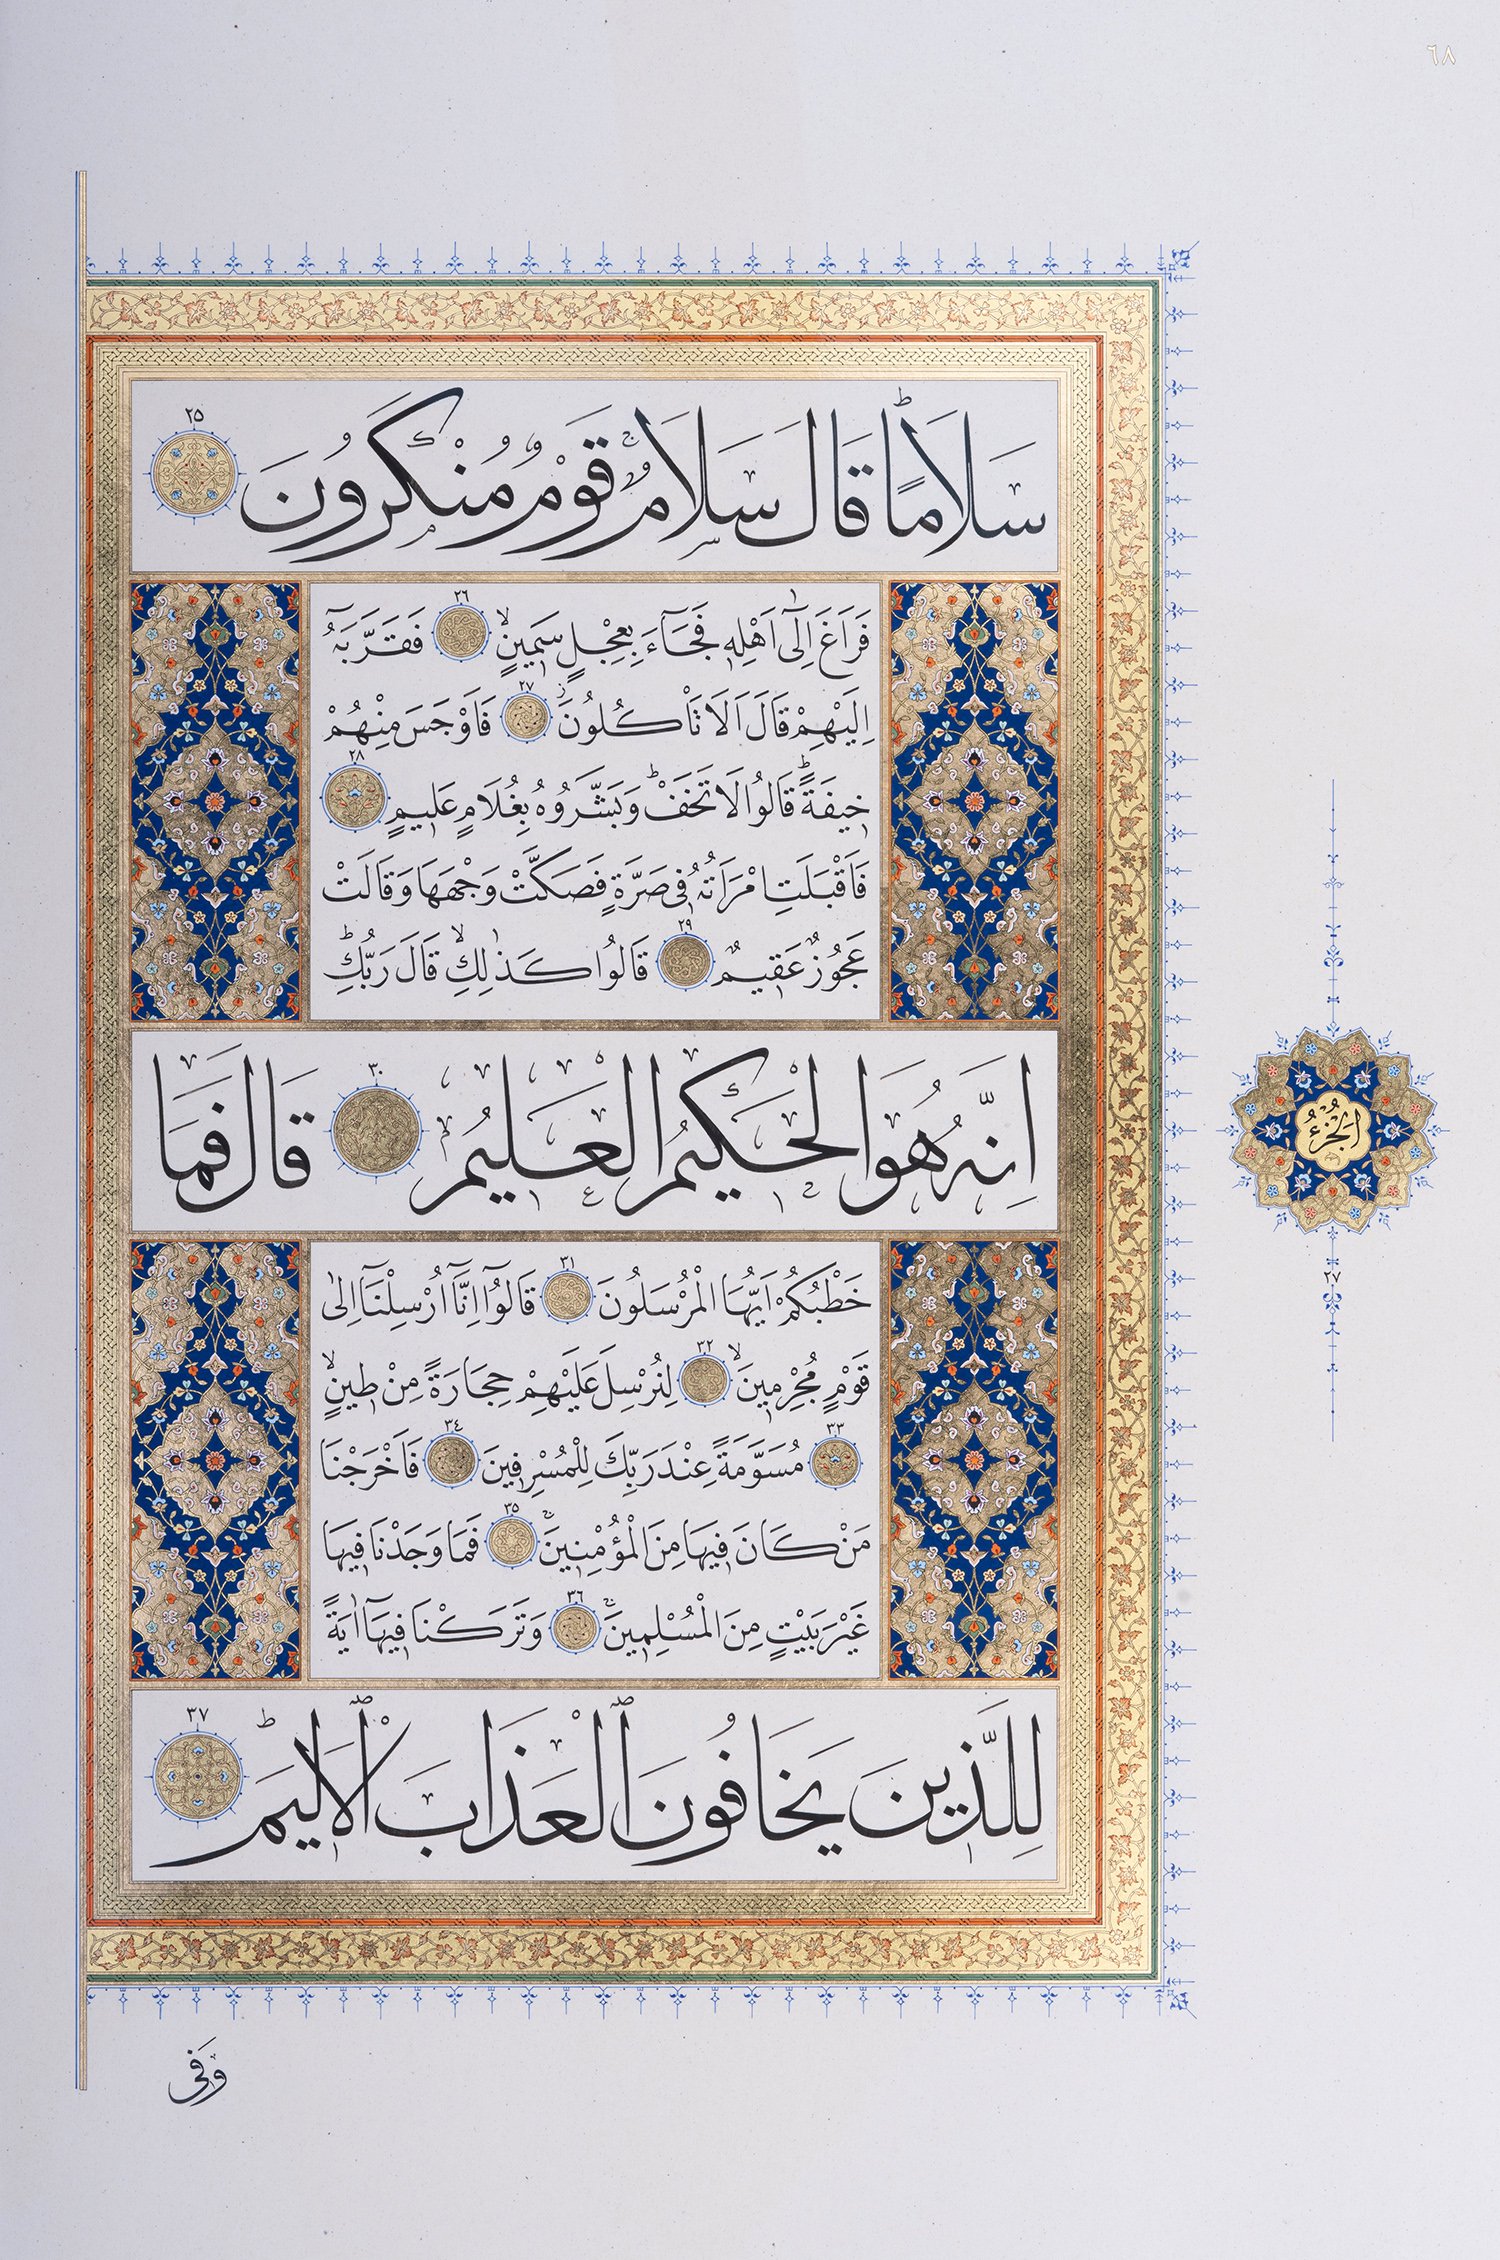 ٦٨
سَلَامًاۜ قَالَ سَلَامٌۚ قَوْمٌ مُنْكَرُونَ ٢٥
فَرَاغَ اِلٰٓى اَهْلِه۪ فَجَٓاءَ بِعِجْلٍ سَم۪ينٍۙ ٢٦ فَقَرَّبَهُٓ
اِلَيْهِمْ قَالَ اَلَا تَأْكُلُونَۘ ٢٧ فَاَوْجَسَ مِنْهُمْ
خ۪يفَةًۜ قَالُوا لَا تَخَفْۜ وَبَشَّرُوهُ بِغُلَامٍ عَل۪يمٍ ٢٨
فَاَقْبَلَتِ امْرَاَتُهُ ف۪ي صَرَّةٍ فَصَكَّتْ وَجْهَهَا وَقَالَتْ
عَجُوزٌ عَق۪يمٌ ٢٩ قَالُوا كَذٰلِكِۙ قَالَ رَبُّكِۜ
اِنَّهُ هُوَ الْحَك۪يمُ الْعَل۪يمُ ٣٠ قَالَ فَمَا
خَطْبُكُمْ اَيُّهَا الْمُرْسَلُونَ ٣١ قَالُٓوا اِنَّٓا اُرْسِلْنَٓا اِلٰى
قَوْمٍ مُجْرِم۪ينَۙ ٣٢ لِنُرْسِلَ عَلَيْهِمْ حِجَارَةً مِنْ ط۪ينٍۙ
٣٣ مُسَوَّمَةً عِنْدَ رَبِّكَ لِلْمُسْرِف۪ينَ ٣٤ فَاَخْرَجْنَا
مَنْ كَانَ ف۪يهَا مِنَ الْمُؤْمِن۪ينَۚ ٣٥ فَمَا وَجَدْنَا ف۪يهَا
غَيْرَ بَيْتٍ مِنَ الْمُسْلِم۪ينَۚ ٣٦ وَتَرَكْنَا ف۪يهَٓا اٰيَةً
لِلَّذ۪ينَ يَخَافُونَ ٱلْعَذَابَ ٱلْاَل۪يمَۜ ٣٧
اَلْجُزْءُ
٢٧
وَفي